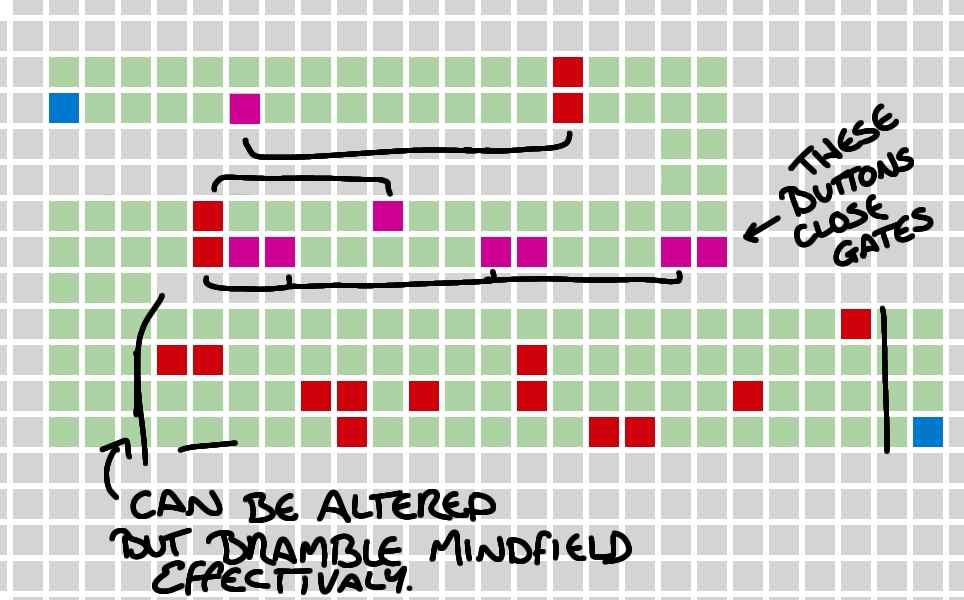 THESE
BUTTONS
CLOSE
GATES
CAN BE ALTERED
BUT BRAMBLE MINDFIELD
EFFECTIVALY.